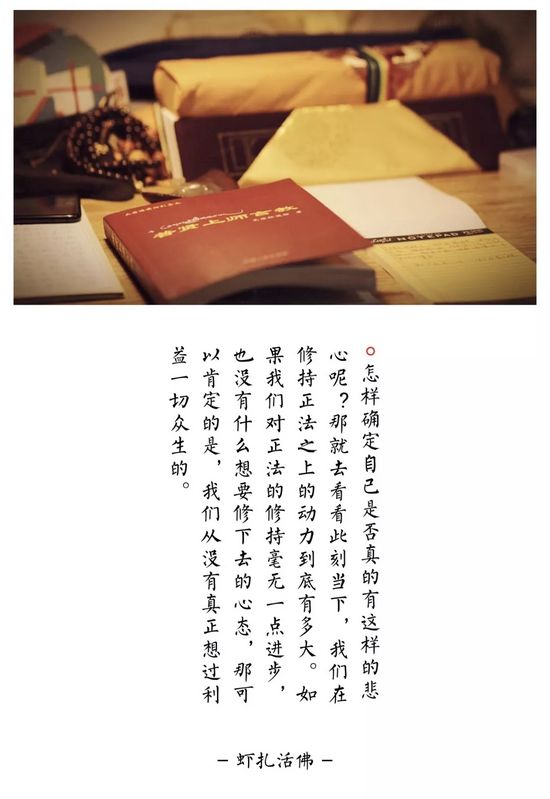 普贤上师言教
NOTEPAD
怎样确定自己是否真的有这样的悲
心呢？那就去看看此刻当下，我们在
修持正法之上的动力到底有多大。如
果我们对正法的修持毫无一点进步，
也没有什么想要修下去的心态，那可
以肯定的是，我们从没有真正想过利
益一切众生的。
－虾扎活佛－